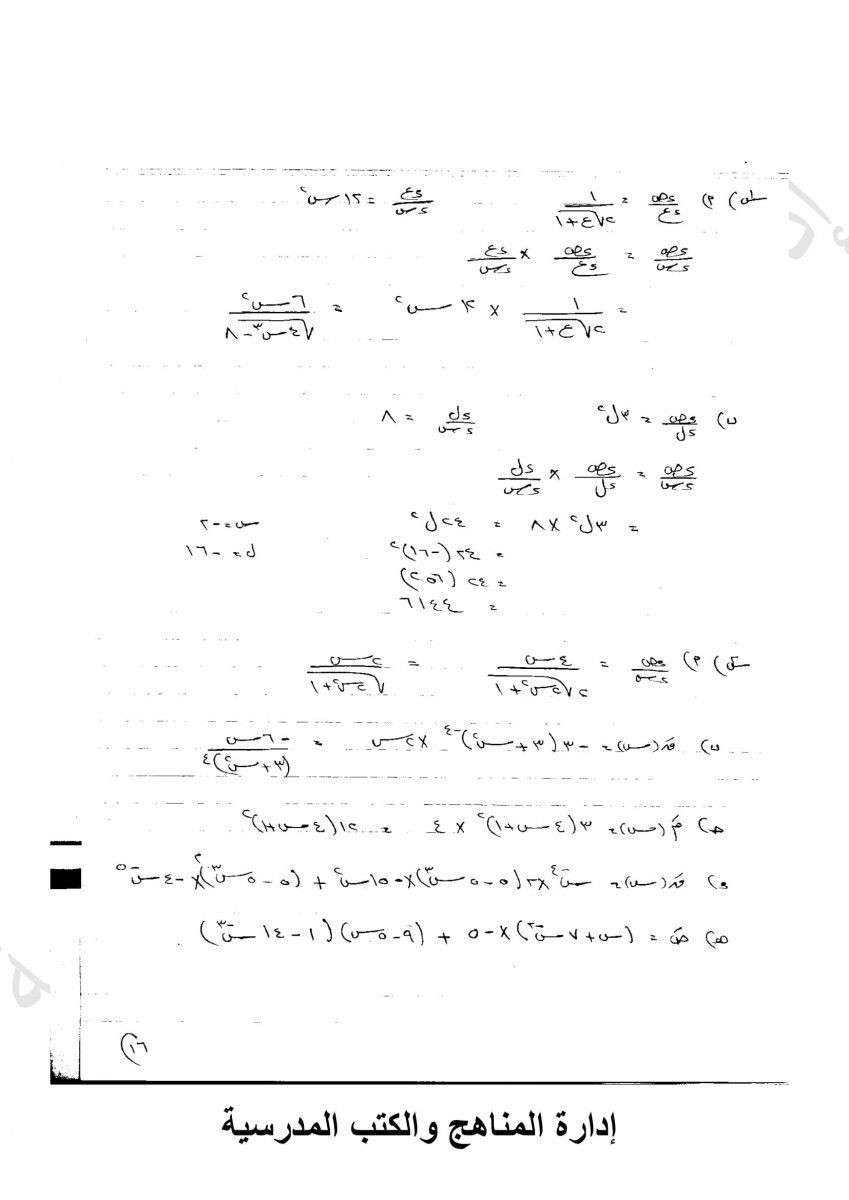 س) م) ءص/ءع = ١/(٢√(ع+١)) ءع/ءس = ١٢س٢
ءص/ءس = ءص/ءع × ءع/ءس
= ١/(٢√(ع+١)) × ١٢س٢ = ٦س٢/√(٤س٣-٨)
ب) ءص/ءل = ٣ل٢ ءل/ءس = ٨
ءص/ءس = ءص/ءل × ءل/ءس
= ٣ل٢ × ٨ = ٢٤ل٢ س=-٢
= ٢٤(-١٦)٢ ل=-١٦
= ٢٤(٢٥٦)
= ٦١٤٤
س) م) ءص/ءس = ٤س/(٢√(٢س٢+١)) = ٢س/√(٢س٢+١)
ب) قَ(س)= -٣(٣+س٢)-٤ × ٢س = -٦س/(٣+س٢)٤
جـ) مَ(س)= ٣(٤س+١)٢ × ٤ = ١٢(٤س+١)٢
د) قَ(س)= س-٤×٢(٥-٥س٣)×-١٥س٢ + (٥-٥س٣)٢×-٤س-٥
هـ) صَ = (س+٧س-٢)×-٥ + (٩-٥س)(١-١٤س-٣)
١٦)
إدارة المناهج والكتب المدرسية